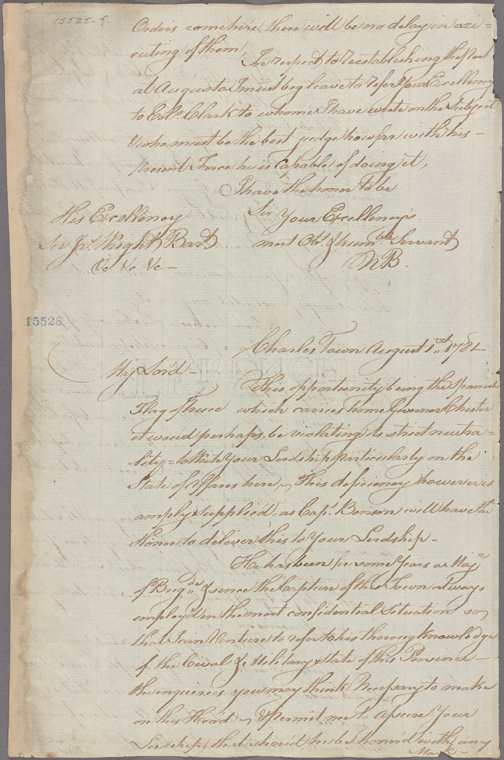 15525.f.
Orders come here there will be no delay in exe-
cuting of them,
In respect to reestablishing the Post
at Augusta I must beg leave to refer Your Excellency
to Col. Clark to whom I have wrote on the Subject
& who must be the best judge how far with his
present Force he is Capable of doing it,
I have the honor to be
His Excellency Sir Your Excellency's
Sir Js. Wright Bart. most Obt. & hum:ble Servant
&c &c &c — NB.
15526
Charles Town August 1st. 1782
My Lord —
This opportunity being the Spanish
Flag of truce which carries home Governor Chester
it would perhaps be violating its strict neutra-
lity to Write Your Lordship particularly on the
State of Affairs here, This deficiency however is
amply supplied as Capt. Benson will have the
Honor to deliver this to Your Lordship —
He has been for some Years as Majr.
of Brigde. & since the Capture of this Town always
employ'd in the most confidential Situations so
that I can Venture to refer to his thorough knowledge
of the Civil & Military State of this Province —
the enquiries you may think Necessary to make
on this Head, & permit me to Assure Your
Lordship that should he be honor'd with any
Mark —